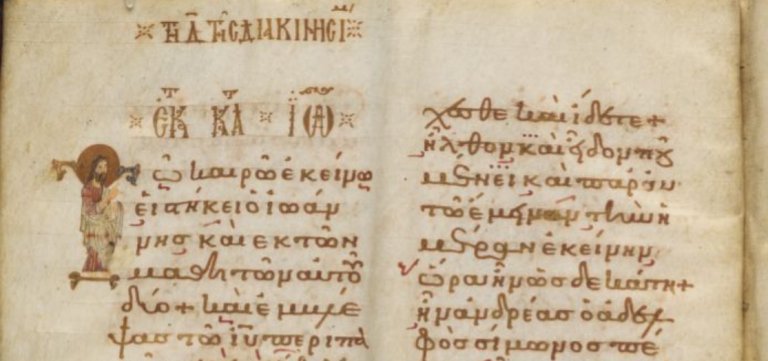 τῇ Δ τῆς διακινησί μ
ἐκ τ κατ ϊω
ῶ καιρῶ ἐκείνω
εἱστήκει ὁ ἰωάν
νης καὶ ἐκ τῶν
μαθητῶν αὐτοῦ
δύο + καὶ ἐμβλέ
ψας τῶ ιυ περιπα
χεσθε καὶ ἴδετε +
ἦλθον καὶ εἶδον ποῦ
μένει καὶ παρ αυ
τῶ ἔμειναν τὴν ἡ
μέραν ἐκείνην
ὥρα ἦν ὡς δεκάτη +
ἦν ἀνδρέας ὁ ἀδελ
φὸς σίμωνος πέ